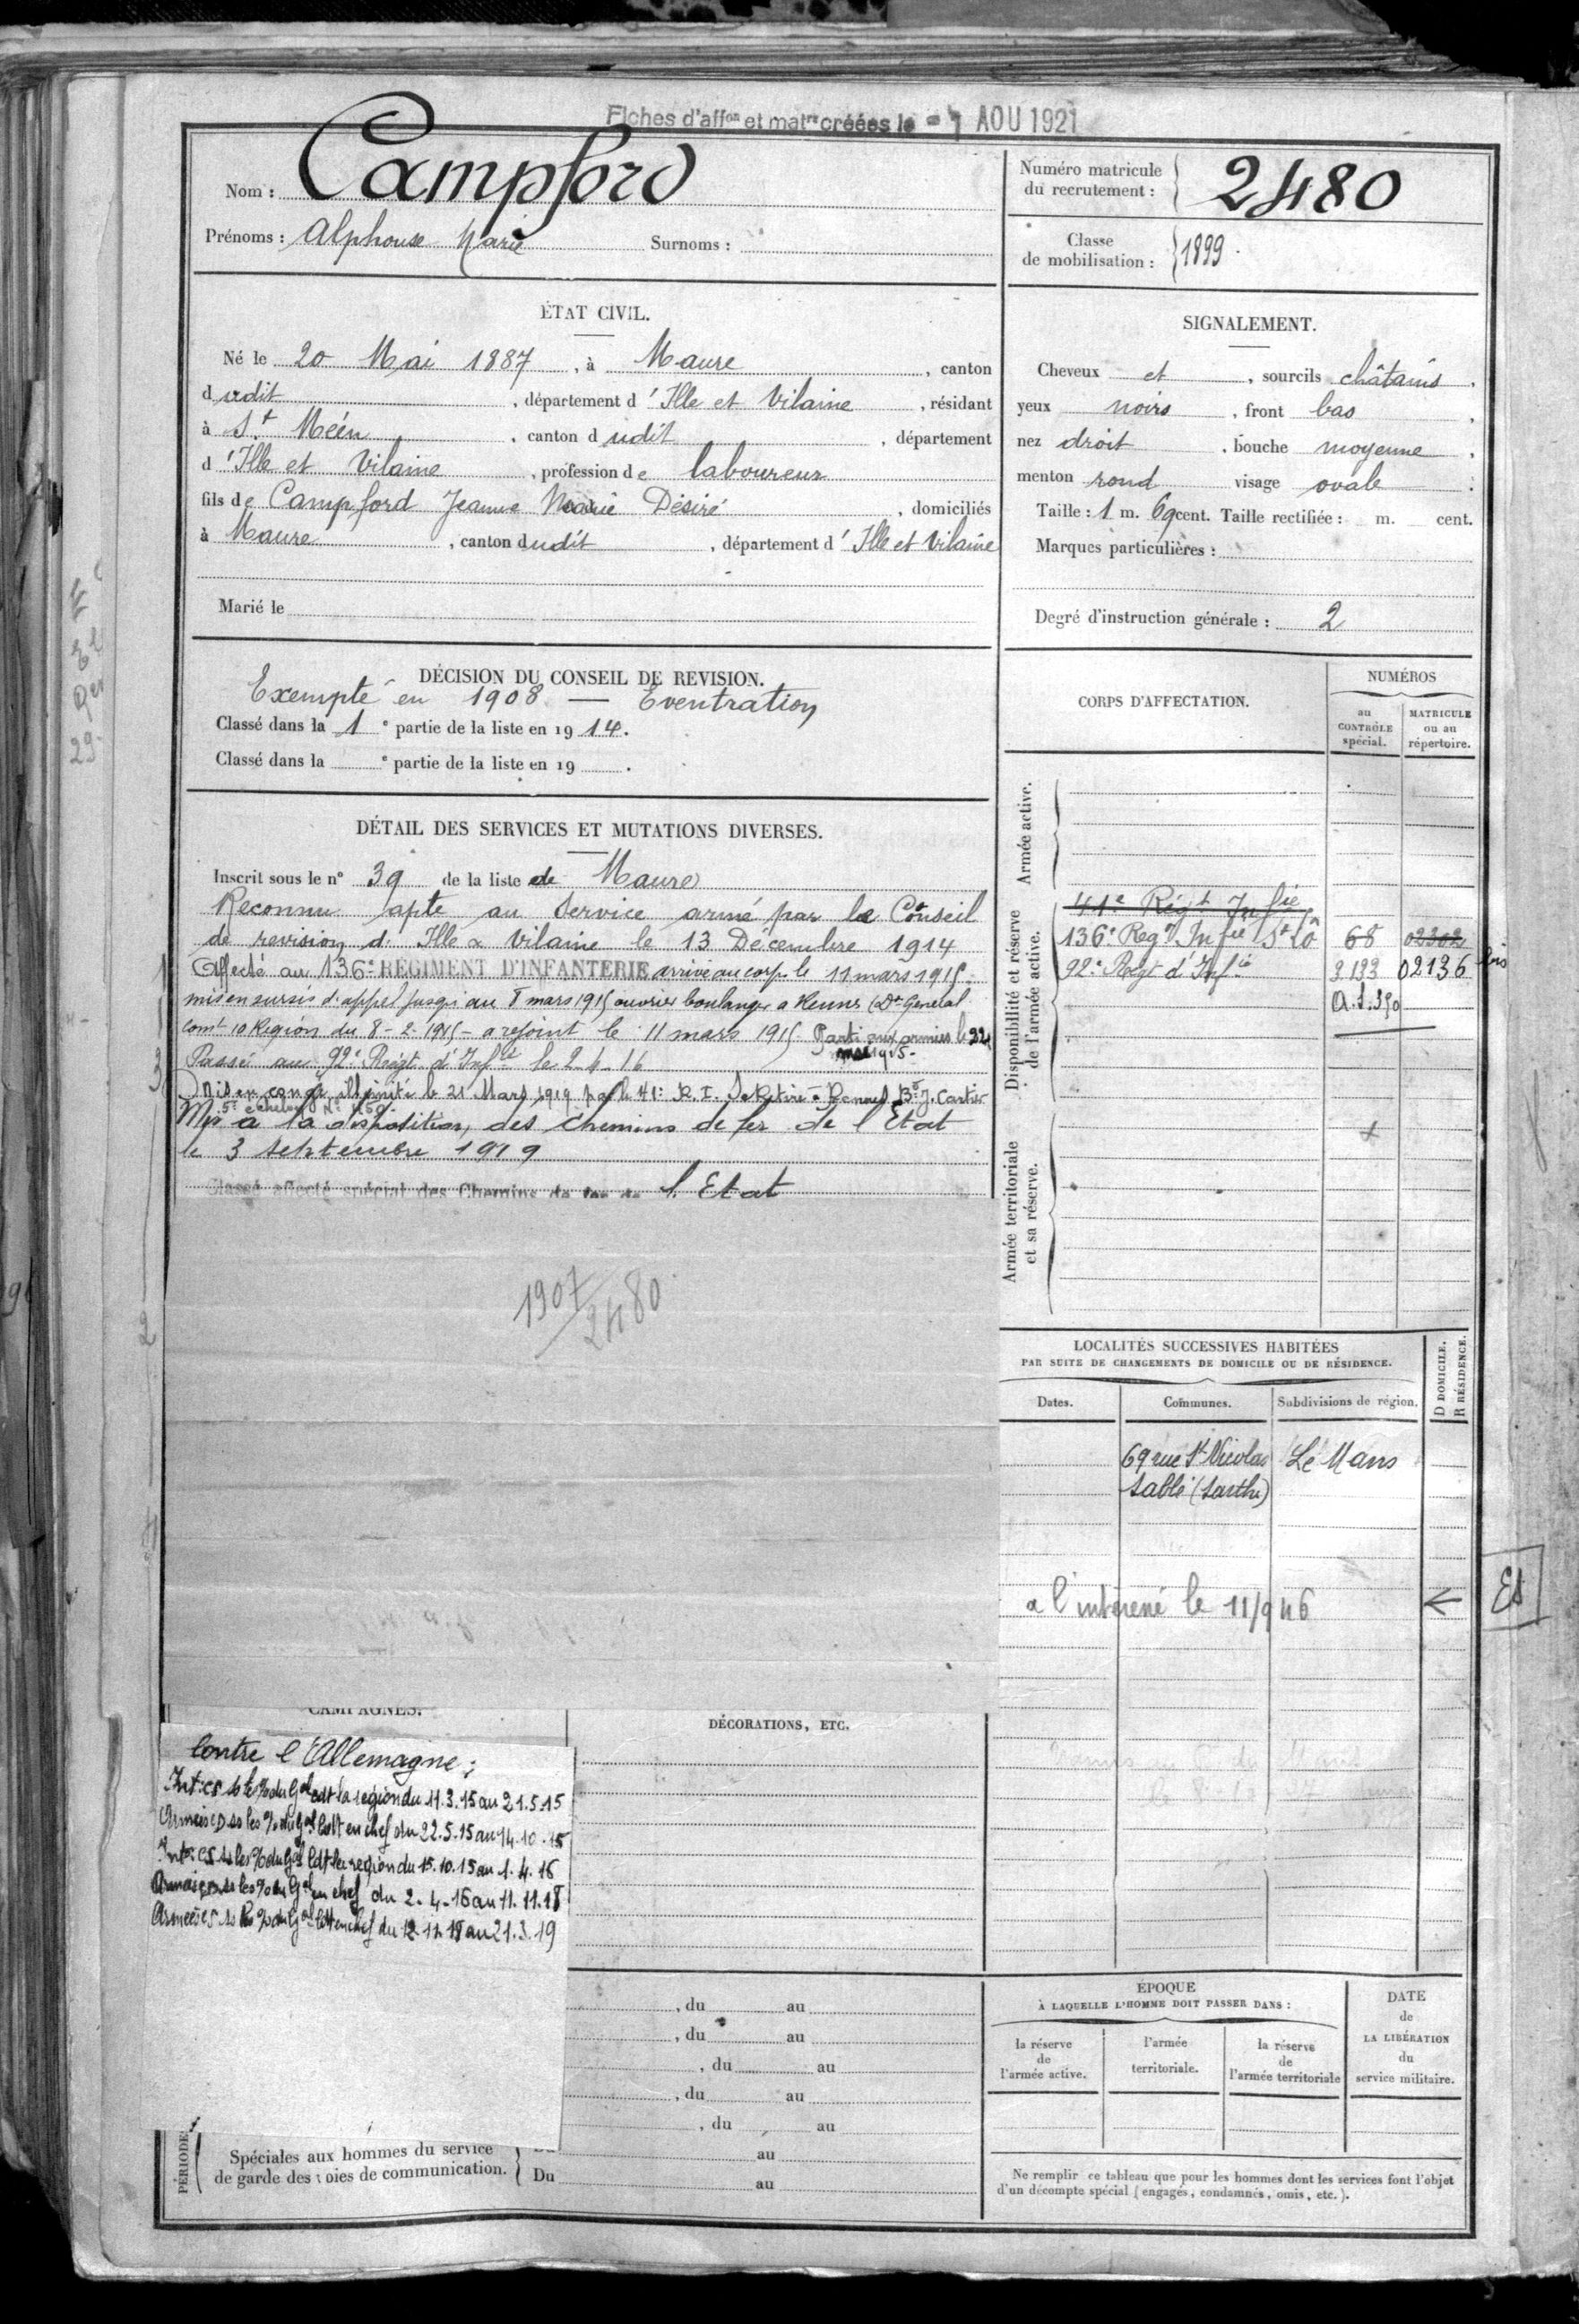 Fiches d'affon et matre créées le - 1 AOU 1921
Nom : Campford
Prénoms : Alphonse Marie Surnoms :
Numéro matricule
du recrutement : 2480
Classe
de mobilisation : 1899.
ÉTAT CIVIL.
Né le 20 Mai 1887, à Maure, canton
dudit, département d'Ille et Vilaine, résidant
à St Méén, canton dudit, département
d'Ille et Vilaine, profession de laboureur
fils de Campford Jeanne Marie Désiré, domiciliés
à Maure, canton dudit, département d'Ille et Vilaine
Marié le
SIGNALEMENT.
Cheveux et, sourcils châtains,
yeux noirs, front bas,
nez droit, bouche moyenne,
menton rond visage ovale.
Taille : 1 m. 69 cent. Taille rectifiée : m. cent.
Marques particulières :
Degré d'instruction générale : 2
DÉCISION DU CONSEIL DE REVISION.
Exempté en 1908 — Eventration
Classé dans la 1e partie de la liste en 1914.
Classé dans la e partie de la liste en 19 .
DÉTAIL DES SERVICES ET MUTATIONS DIVERSES.
Inscrit sous le n° 39 de la liste de Maure
Reconnu apte au Service armé par le Conseil
de revision d. Ille & Vilaine le 13 Décembre 1914
Affecté au 136e RÉGIMENT D'INFANTERIE arrivé au corps le 11 mars 1915.
mis en sursis d'appel jusqu'au 8 mars 1915 ouvrier boulanger a Rennes (Dn General
Comt 10 Region du 8-2-1915 - a rejoint le 11 mars 1915. Parti aux armées le 22
mai 1915.
Passé au 92e Régt d'Infie le 2-4-16
Mis en congé illimité le 21 Mars 1919 par le 41e R.I. Se Retire à Rennes Bd J. Cartier
5e échelon N°
Mis à la disposition des chemins de fer de l'Etat
le 3 septembre 1919
Classé affecté spécial des Chemins de fer de l'Etat
1907/2480
CORPS D'AFFECTATION.
NUMÉROS
au
CONTRÔLE
spécial.
MATRICULE
ou au
répertoire.
Armée active.
Disponibilité et réserve
de l'armée active.
41e Régt Infie
136e Regt Infie St Lô 68 02302
92e Régt d'Infie 3133 02136 bis
A.S.350
Armée territoriale
et sa réserve.
LOCALITÉS SUCCESSIVES HABITÉES
PAR SUITE DE CHANGEMENTS DE DOMICILE OU DE RÉSIDENCE.
D DOMICILE.
R RÉSIDENCE.
Dates. Communes. Subdivisions de région.
69 rue St Nicolas Le Mans
Sablé (Sarthe)
a l'intéressé le 11/9 46
CAMPAGNES.
Contre l'Allemagne :
du 11.3.15 au 21.5.15
en chef du 22.5.15 au 14.10.15
du 15.10.15 au 1.4.16
en chef du 2.4.16 au 11.11.18
en chef du 12.11.18 au 21.3.19
DÉCORATIONS, ETC.
, du au
, du au
, du au
, du au
, du au
au
Du au
PÉRIODES
Spéciales aux hommes du service
de garde des voies de communication.
ÉPOQUE
À LAQUELLE L'HOMME DOIT PASSER DANS :
la réserve
de
l'armée active.
l'armée
territoriale.
la réserve
de
l'armée territoriale
DATE
de
LA LIBÉRATION
du
service militaire.
Ne remplir ce tableau que pour les hommes dont les services font l'objet
d'un décompte spécial (engagés, condamnés, omis, etc.).